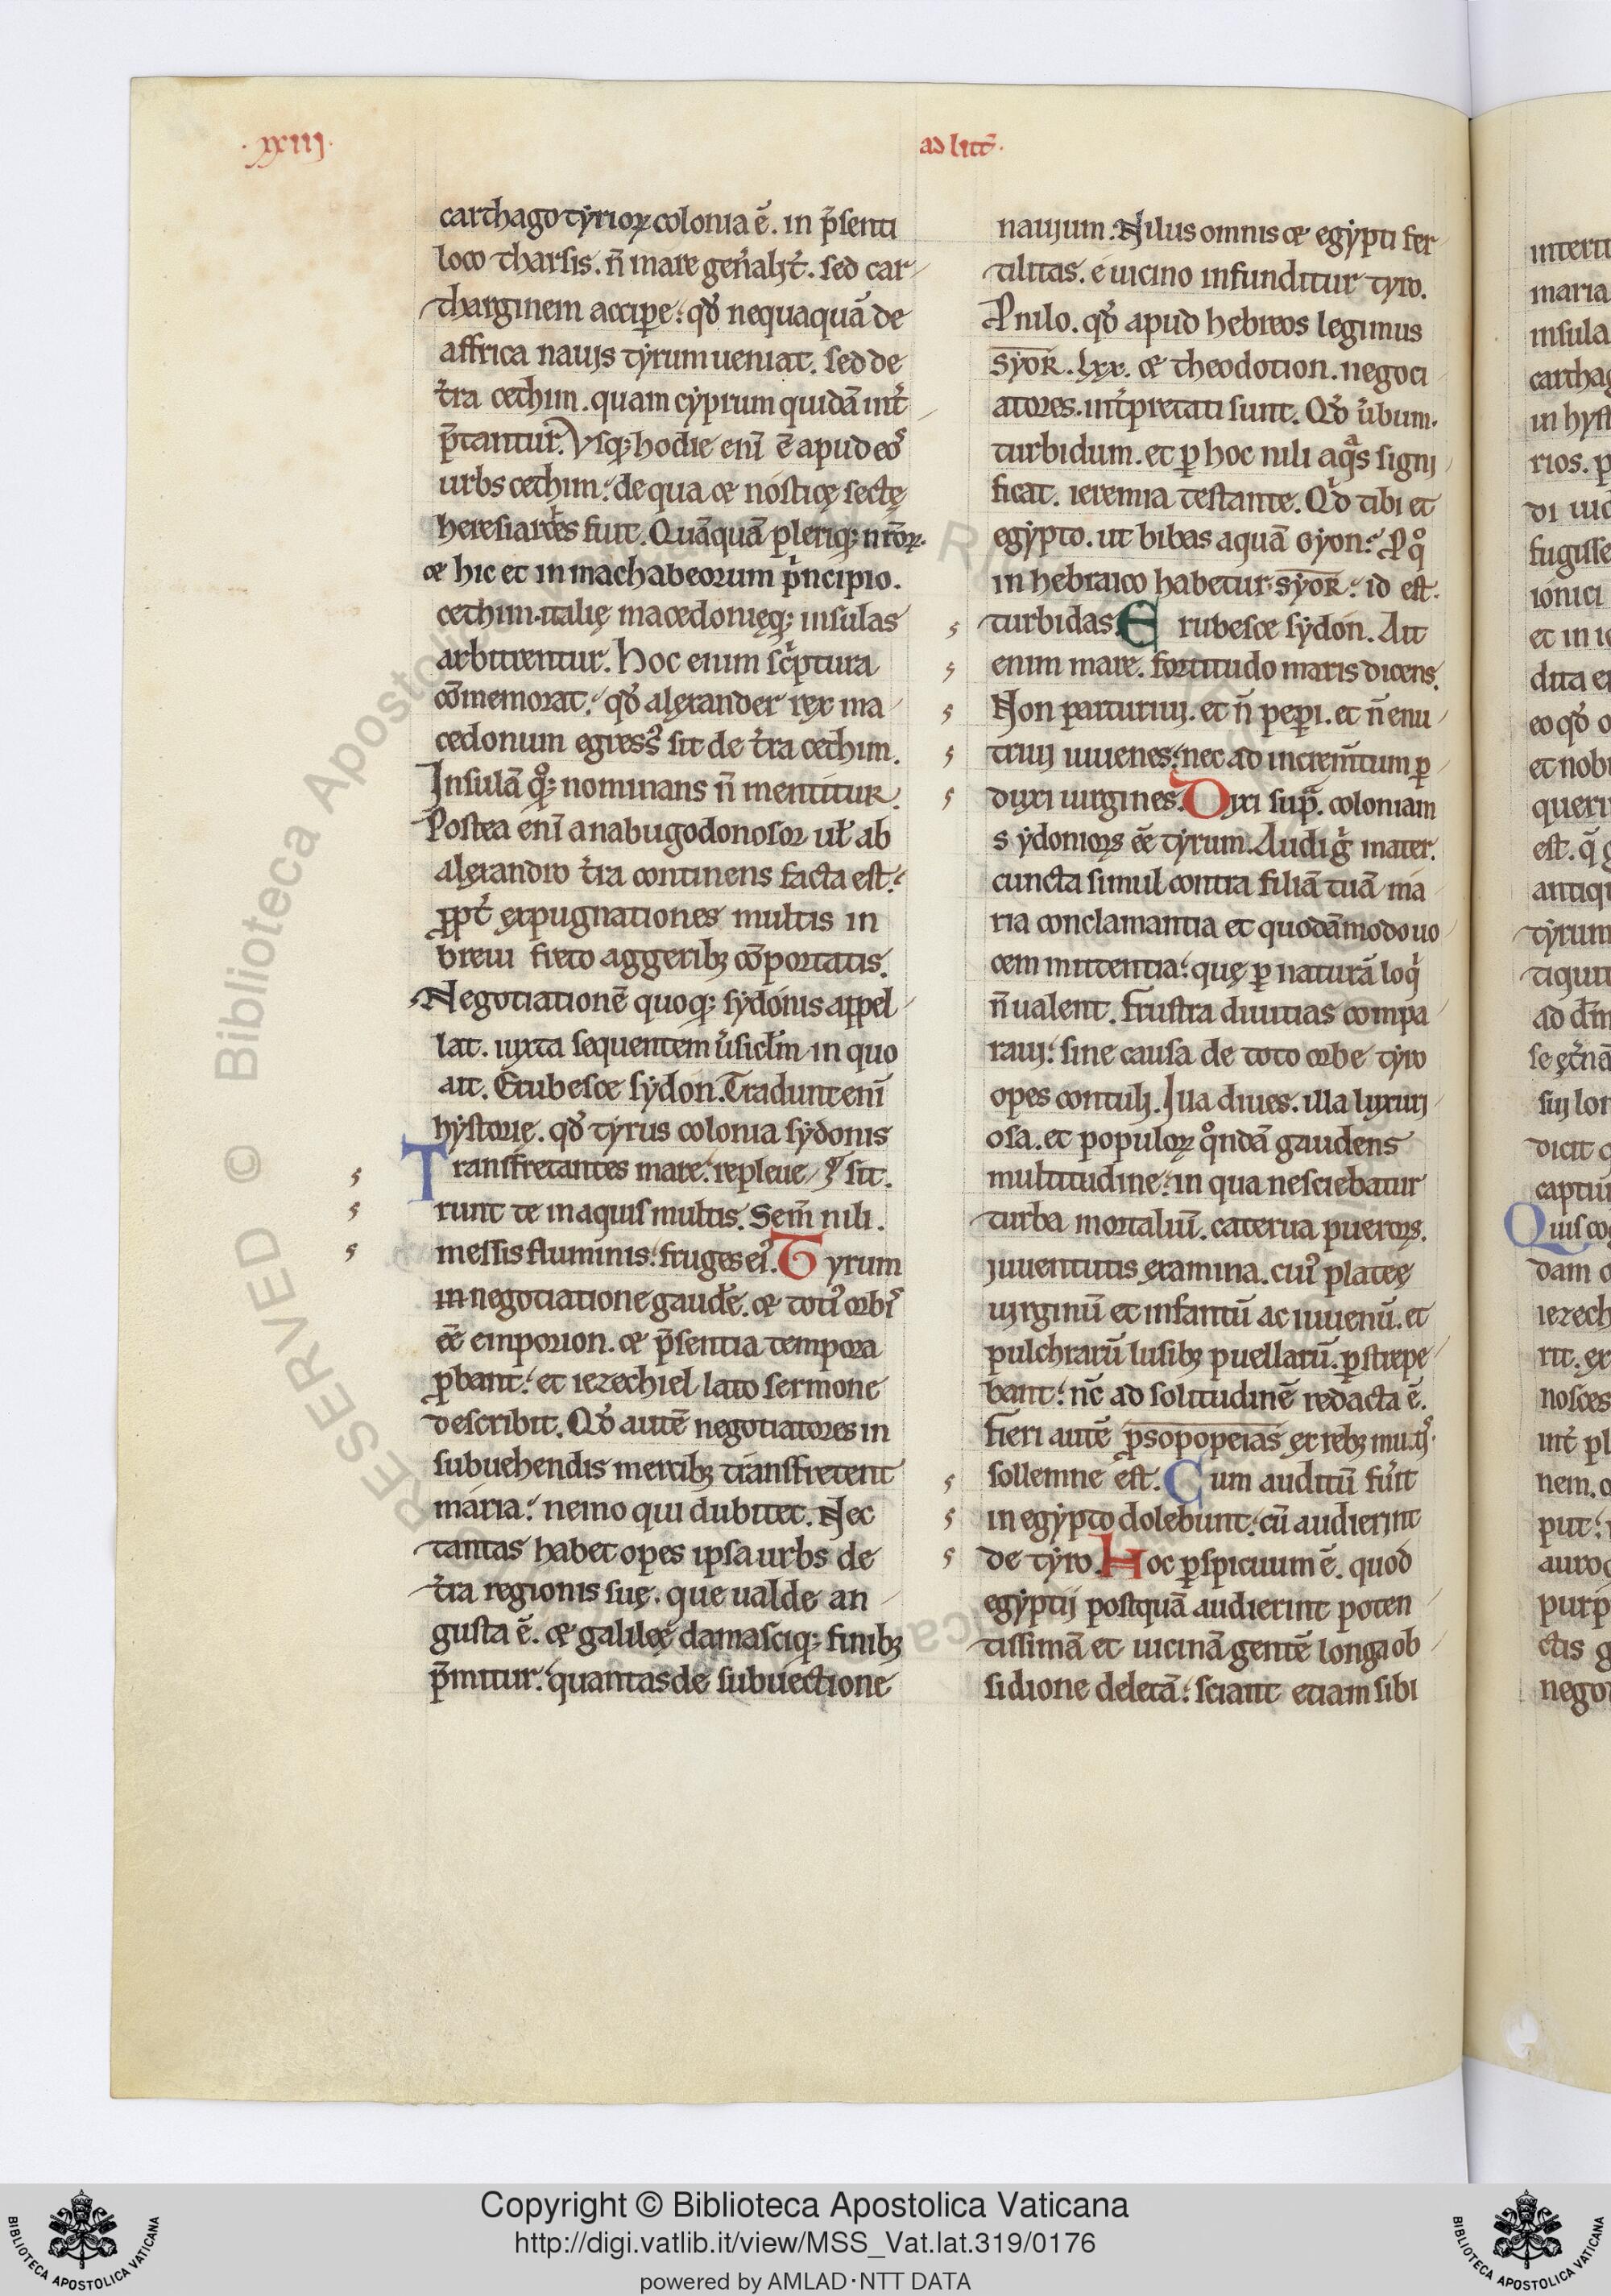 ·xxiij·
ad litt̄·
carthago tyrioꝝ colonia ē. in p̄senti
loco tharsis. n̄ mare gen̄alit̄. sed car
thaginem accipe: qđ nequaquā de
affrica nauis tyrum ueniat. sed de
t̄ra cethim. quam cyprum quidā int̄
p̄tantur. Vsq; hodie enī ē apud eos
urbs cethim: de qua ⁊ nosticę sectę
heresiarches fuit. Quāquā pleriq; nr̄oꝝ.
⁊ hic et in machabeorum pͥncipio.
cethim italię macedonięq; insulas
arbitrentur. Hoc enim scͥptura
cōmemorat: qđ alexander rex ma
cedonum egressꝰ sit de t̄ra cethim.
Insulā qͦq; nominans n̄ mentitur.
Postea enī a nabugodonosor uł ab
alexandro t̄ra continens facta est:
ꝓpt̄ expugnationes multis in
breui freto aggeribꝫ cōportatis.
Negotiationē quoq; sydonis appel
lat. iuxta sequentem ūsicłm in quo
ait. Erubesce sydon. Tradunt enī
hystorię. qđ tyrus colonia sydonis
Transfretantes mare: repleue sit.
runt te in aquis multis. Sem̄ nili.
messis fluminis: fruges eiꝰ. Tyrum
in negotiatione gaudere. ⁊ totiꝰ orbis
eē emporion. ⁊ p̄sentia tempora
ꝓbant: et iezechiel lato sermone
describit. Qđ autē negotiatores in
subuehendis mercibꝫ transfretent
maria: nemo qui dubitet. Nec
tantas habet opes ipsa urbs de
t̄ra regionis suę. que ualde an
gusta ē. ⁊ galileę damasciq; finibꝫ
p̄mitur: quantas de subuectione
nauium. Nilus omnis ⁊ egypti fer
tilitas. e uicino infunditur tyro.
P nilo. qđ apud hebreos legimus
syor. lxx. ⁊ theodotion. negoci
atores. int̄pretati sunt. Qđ ūbum.
turbidum. et ꝑ hoc nili aqͣs signi
ficat. ieremia testante. Qͥd tibi et
egypto. ut bibas aquā gyon: P qͦ
in hebraico habetur syor: id est.
turbidas. Erubesce sydon. Ait
enim mare. fortitudo maris dicens.
Non parturiui. et n̄ peperi. et n̄ enu
triui iuuenes: nec ad increm̄tum ꝑ
duxi uirgines. Dixi supͣ. coloniam
sydonioꝝ eē tyrum. Audi gͥ mater.
cuncta simul contra filiā tuā ma
ria conclamantia et quodāmodo uo
cem mittentia: quę ꝑ naturā loqͥ
n̄ ualent. Frustra diuitias compa
raui: sine causa de toto orbe tyro
opes contuli. Illa diues. illa luxuri
osa. et populoꝝ qͦndā gaudens
multitudine: in qua nesciebatur
turba mortaliū. caterua pueroꝝ.
iuuentutis examina. cuiꝰ plateę
uirginū et infantū ac iuuenū. et
pulchrarū lusibꝫ puellarū. ꝑstrepe
bant: nc̄ ad solitudinē redacta ē.
Fieri autē p̄sopopeias ex rebꝫ mutis
sollemne est. Cum auditū fūit
in egypto dolebunt: cū audierint
de tyro. Hoc ꝑspicuum ē. quod
egyptij postquā audierint poten
tissimā et uicinā gentē longa ob
sidione deletā: sciant etiam sibi
Copyright © Biblioteca Apostolica Vaticana
http://digi.vatlib.it/view/MSS_Vat.lat.319/0176
powered by AMLAD·NTT DATA